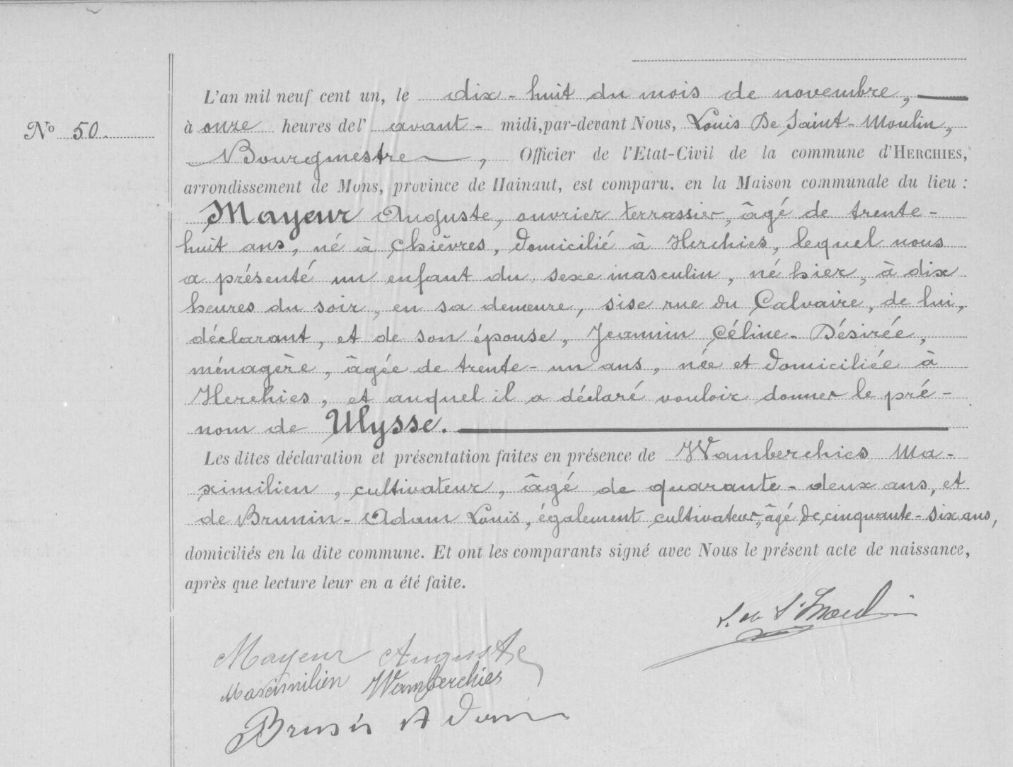 L'an mil neuf cent un, le dix-huit du mois de novembre,
Nº 50.
à onze heures de l'avant-midi, par-devant Nous, Louis De Saint-Moulin,
Bourgmestre, Officier de l'Etat-Civil de la commune d'HERCHIES,
arrondissement de Mons, province de Hainaut, est comparu, en la Maison communale du lieu :
Mayeur Auguste, ouvrier terrassier, âgé de trente-
huit ans, né à Chièvres, domicilié à Herchies, lequel nous
a présenté un enfant du sexe masculin, né hier, à dix
heures du soir, en sa demeure, sise rue du Calvaire, de lui,
déclarant, et de son épouse, Jeannin Céline-Désirée,
ménagère, âgée de trente-un ans, née et domiciliée à
Herchies, et auquel il a déclaré vouloir donner le pré-
nom de Ulysse.
Les dites déclaration et présentation faites en présence de Wamberchies Ma-
ximilien, cultivateur, âgé de quarante-deux ans, et
de Brunin-Adam Louis, également cultivateur, âgé de cinquante-six ans,
domiciliés en la dite commune. Et ont les comparants signé avec Nous le présent acte de naissance,
après que lecture leur en a été faite.
L. de St Moulin
Mayeur Auguste
Maximilien Wamberchies
Brunin Adam